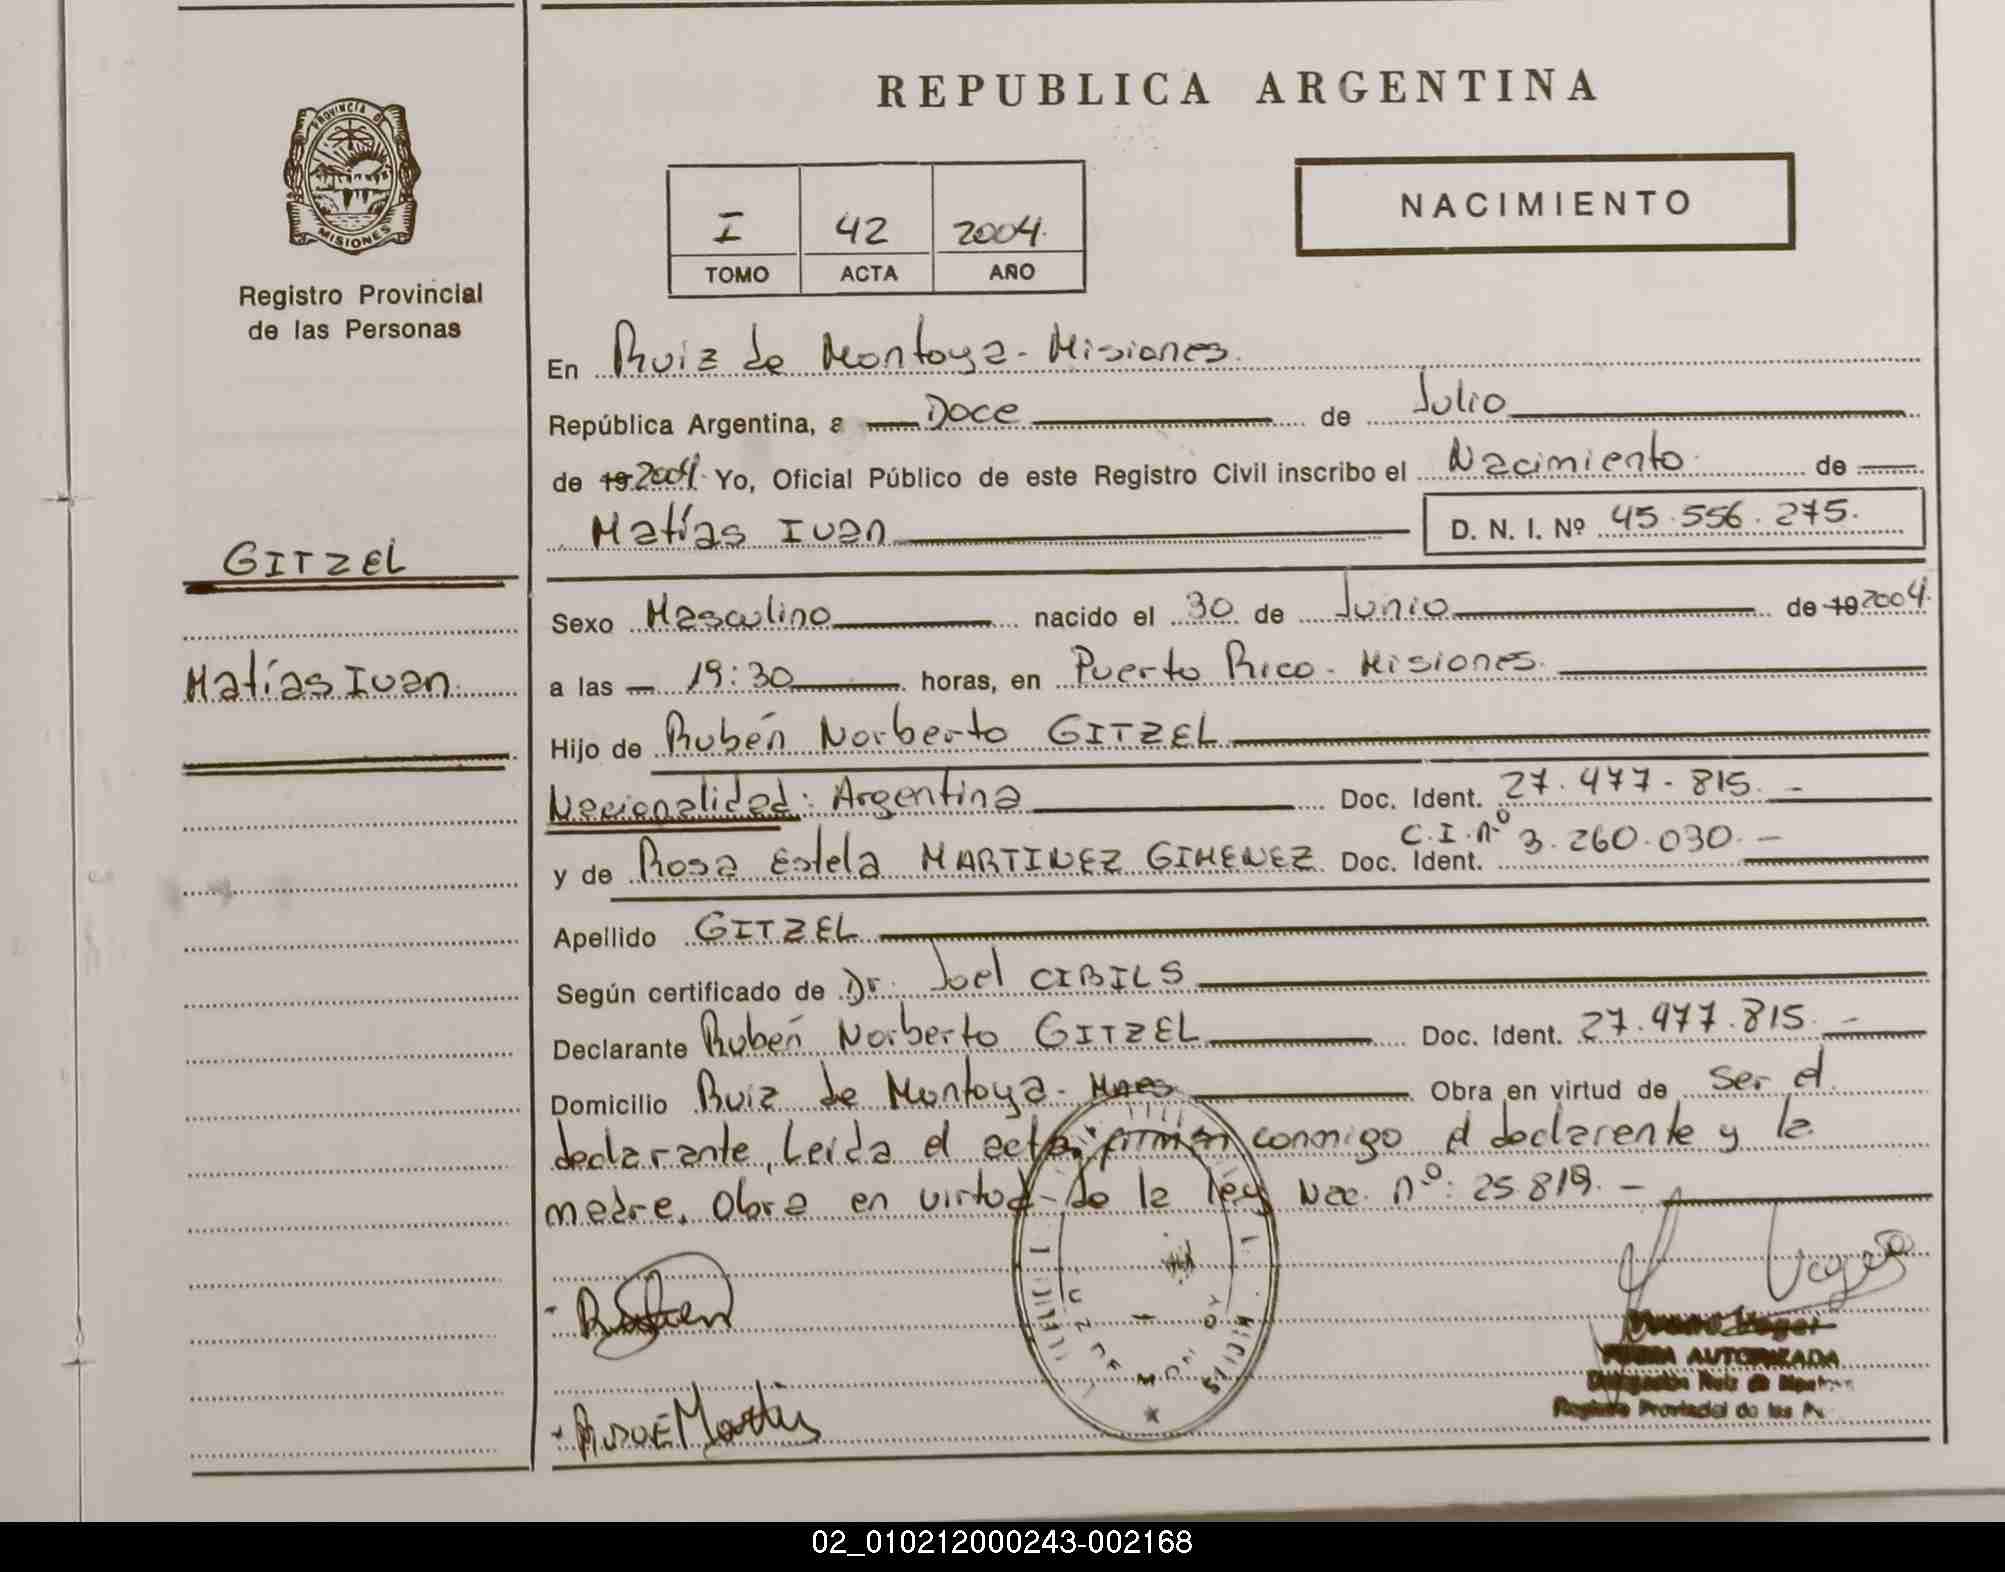 REPUBLICA ARGENTINA
PROVINCIA DE
MISIONES
Registro Provincial
de las Personas
I 42 2004.
TOMO ACTA AÑO
NACIMIENTO
En Ruiz de Montoya - Misiones.
República Argentina, a Doce de Julio
de 19 2004. Yo, Oficial Público de este Registro Civil inscribo el Nacimiento de
Matías Ivan D. N. I. Nº 45.556.275.
GITZEL
Matías Ivan
Sexo Masculino nacido el 30 de Junio de 19 2004.
a las 19:30 horas, en Puerto Rico - Misiones.
Hijo de Rubén Norberto GITZEL
Nacionalidad: Argentina Doc. Ident. 27.477.815. -
C.I. nº 3.260.030. -
y de Rosa Estela MARTINEZ GIMENEZ Doc. Ident.
Apellido GITZEL
Según certificado de Dr. Joel CIBILS
Declarante Rubén Norberto GITZEL Doc. Ident. 27.477.815. -
Domicilio Ruiz de Montoya - Mnes Obra en virtud de Ser el
declarante, Leída el acta, firman conmigo el declarente y la
madre. Obra en virtud de la ley Nac. nº: 25.819. -
FIRMA AUTORIZADA
Delegación Ruiz de Montoya
Registro Provincial de las P
02_010212000243-002168